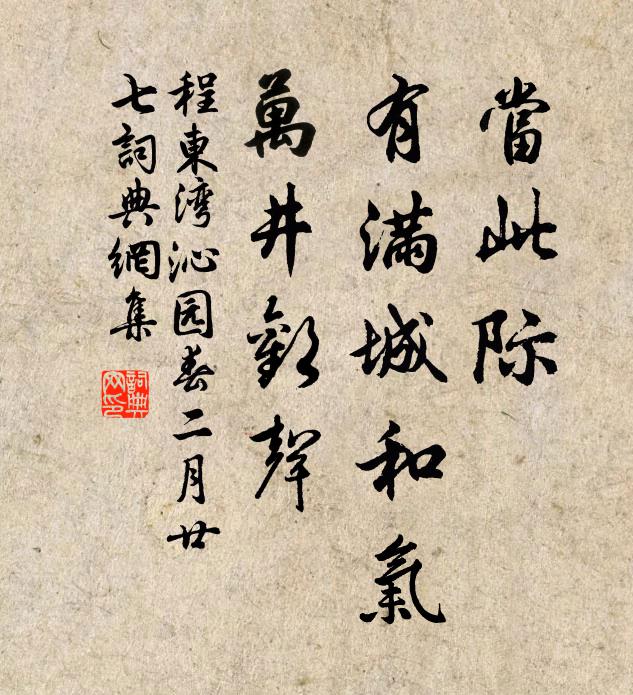 當此际
有满城和氣
萬井歡聲
程東湾沁园春二月廿
七詞典網集
詞典网印